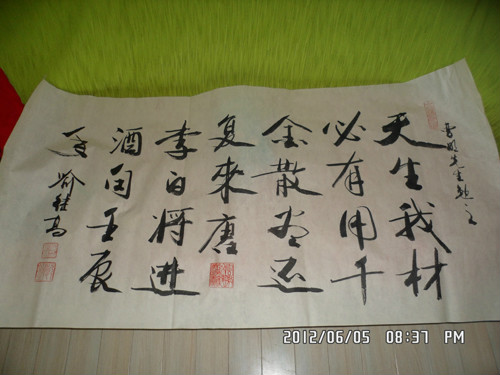 天生我材
必有用千
金散尽还
复來
李白将进
酒句壬辰
夏 喻继高
2012/06/05 08:37 PM